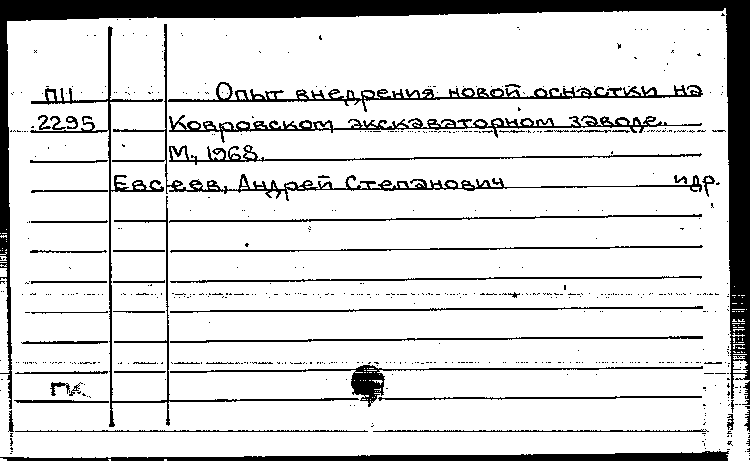 П11 Опыт внедрения новой оснастки на
2295 Ковровском экскаваторном заводе.
М., 1968.
Евсеев, Андрей Степанович и др.
ГК